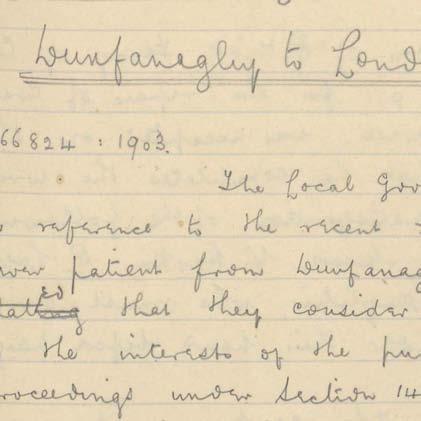 Dunfanaghy to Lond
66824 : 1903.
The Local Gov
reference to the recent
ver patient from Dunfanag
tating ED that they consider
the interests of the pu
roceedings under Section 14